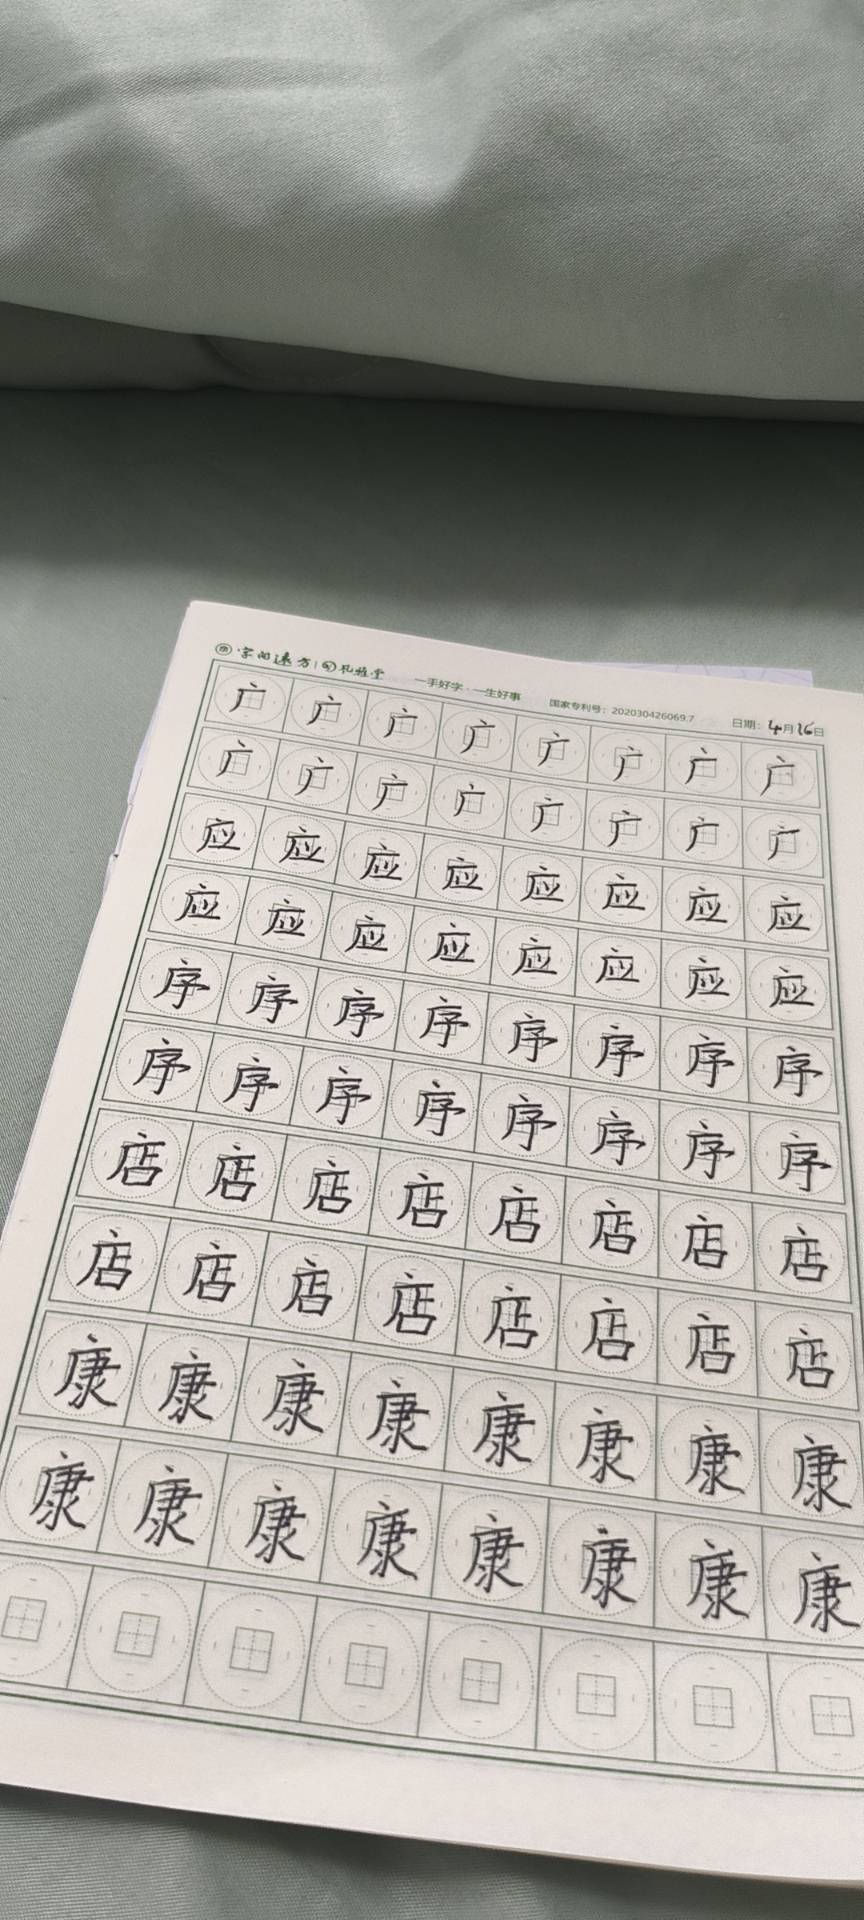 字向远方 礼雅堂 一手好字·一生好事 国家专利号：202030426069.7 日期：4月16日
广 广 广 广 广 广 广 广
广 广 广 广 广 广 广 广
应 应 应 应 应 应 应 应
应 应 应 应 应 应 应 应
序 序 序 序 序 序 序 序
序 序 序 序 序 序 序 序
店 店 店 店 店 店 店 店
店 店 店 店 店 店 店 店
康 康 康 康 康 康 康 康
康 康 康 康 康 康 康 康